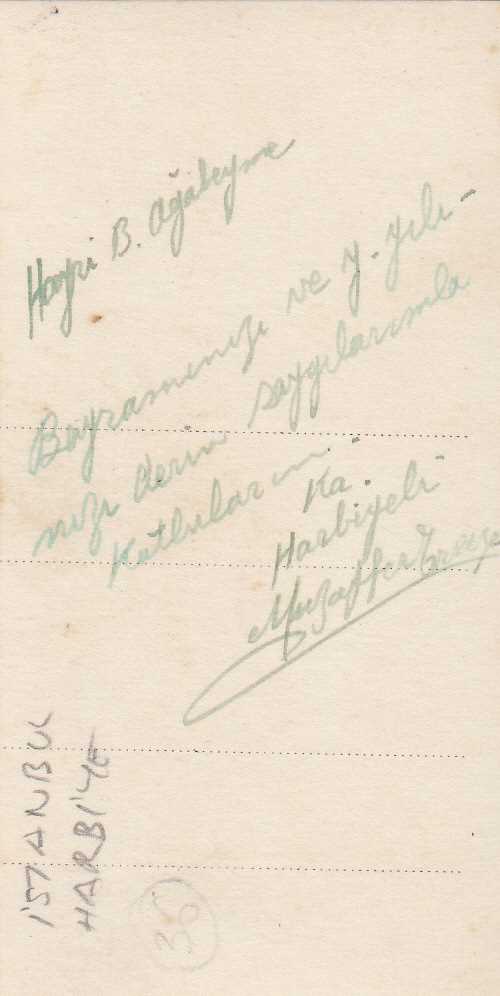 Hayri B. Ağabeyme
Bayramınızı ve y. yılı-
nızı derin saygılarımla
Kutlularım.
Ka.
Harbiyeli
Muzaffer
İSTANBUL
HARBİYE
35